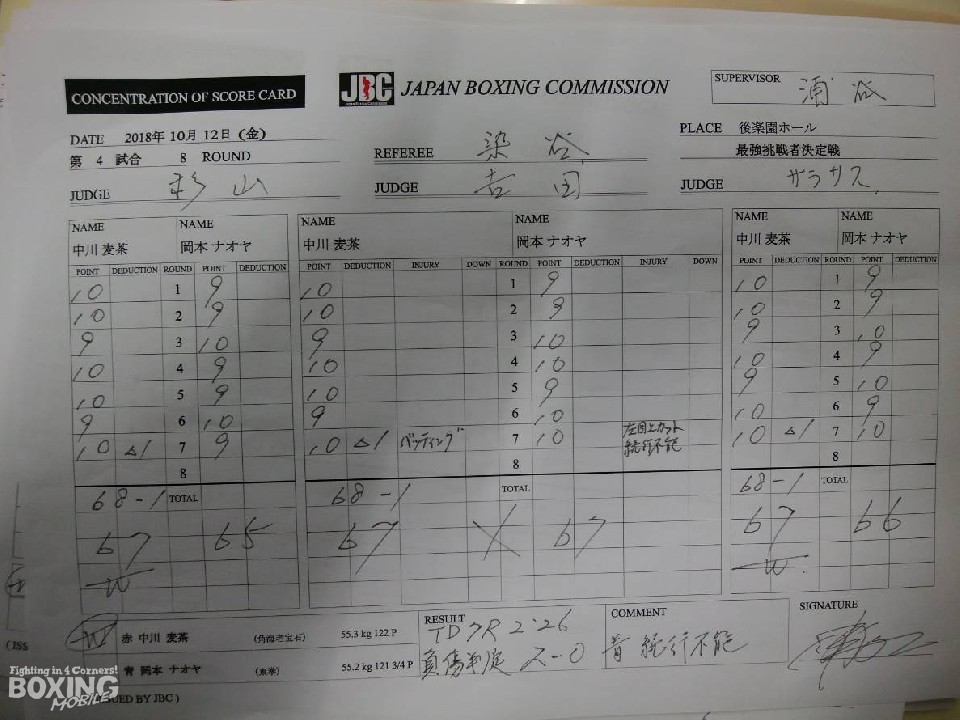 CONCENTRATION OF SCORE CARD
JBC JAPAN BOXING COMMISSION
SUPERVISOR 浦谷
DATE 2018年 10月 12日 (金)
第 4 試合 8 ROUND
REFEREE 染谷
PLACE 後楽園ホール
最強挑戦者決定戦
JUDGE 杉山
JUDGE 吉田
JUDGE サラサス
NAME NAME NAME NAME NAME NAME
中川 麦茶 岡本 ナオヤ 中川 麦茶 岡本 ナオヤ 中川 麦茶 岡本 ナオヤ
POINT DEDUCTION ROUND POINT DEDUCTION POINT DEDUCTION INJURY DOWN ROUND POINT DEDUCTION INJURY DOWN POINT DEDUCTION ROUND POINT DEDUCTION
10 1 9 10 1 9 10 1 9
10 2 9 10 2 9 10 2 9
9 3 10 9 3 10 9 3 10
10 4 9 10 4 10 10 4 9
10 5 9 10 5 9 9 5 10
9 6 10 9 6 10 10 6 9
10 △1 7 9 10 △1 バッティング 7 10 左目上カット 続行不能 10 △1 7 10
8 8 8
68-1 TOTAL 68-1 TOTAL 68-1 TOTAL
67 65 67 X 67 67 66
W W
W 赤 中川 麦茶 (角海老宝石) 55.3 kg 122 P
青 岡本 ナオヤ (東拳) 55.2 kg 121 3/4 P
RESULT
TD 7R 2'26
負傷判定 2-0
COMMENT
青 続行不能
SIGNATURE
Fighting in 4 Corners!
BOXING
MOBILE
(ISSUED BY JBC)